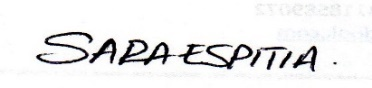 SARA ESPITIA.